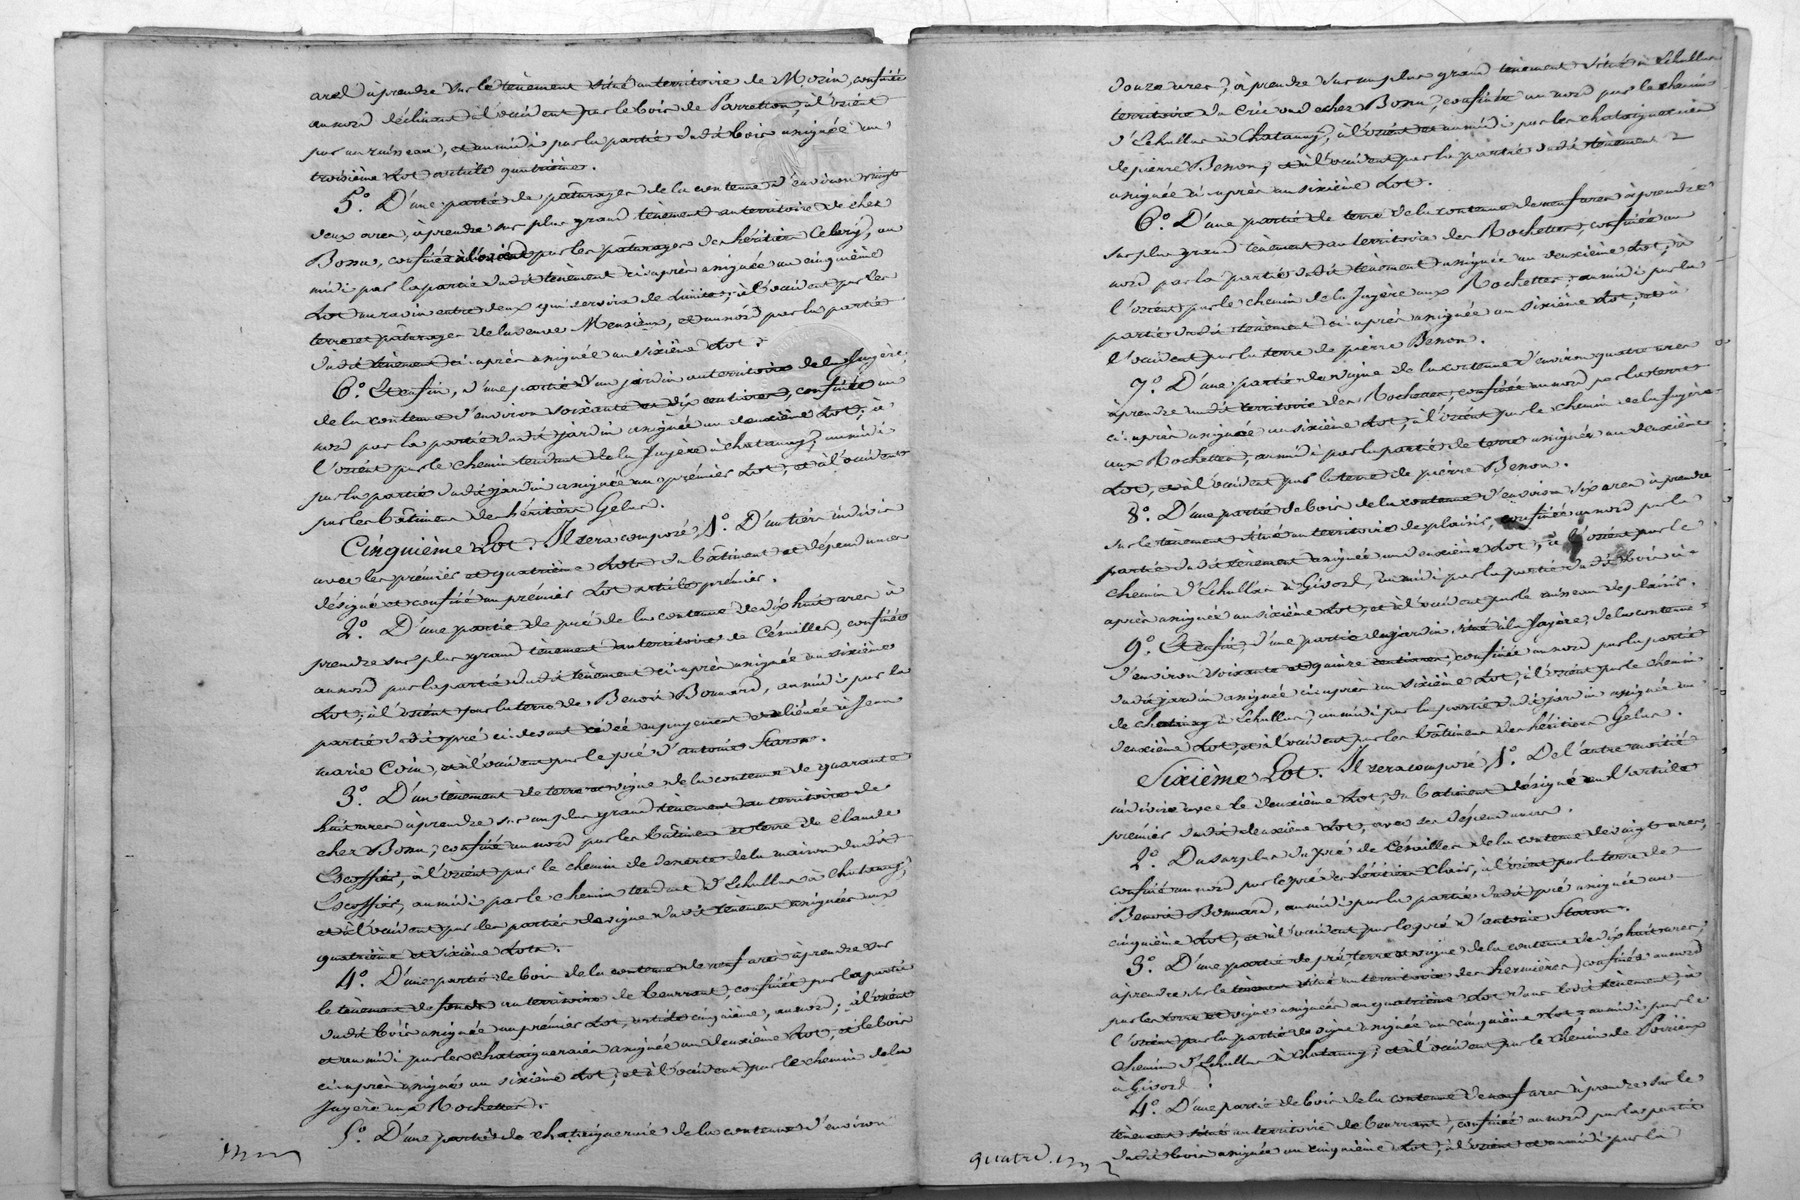 ares à prendre sur le tènement situé au territoire de Morin, confinée
au nord déclinant à l'occident par le bois de Parretion, à l'orient
par un ruisseau, et au midi par la partie dudit bois assignée au
troisième Lot article quatrième.
5.° D'une partie de pâturages de la contenue d'environ vingt
deux ares, à prendre sur plus grand tènement au territoire de chez
Bonu, confinée à l'orient par les pâturages des héritiers Celery, au
midi par la partie dudit tènement ci-après assignée au cinquième
Lot un ravin entre deux qui servira de Limite, à l'occident par les
terre et pâturages de la veuve Mensieux, et au nord par la partie
dudit tènement ci-après assignée au sixième Lot.
6.° Et enfin, d'une partie d'un jardin au territoire de la Juyère,
de la contenue d'environ soixante et dix centiares, confinée au
nord par la partie dudit jardin assignée au deuxième Lot, à
l'orient par le chemin tendant de la Juyère à chatanay, au midi
par la partie dudit jardin assignée au premier Lot, et à l'occident
par les bâtimens des héritiers Gelas.
Cinquième Lot. Il sera composé, 1.° D'un tiers indivis
avec les premier et quatrième Lots du bâtiment et dépendances
désigné et confiné au premier Lot article premier.
2.° D'une partie de pré de la contenue de dix huit ares à
prendre sur plus grand tènement au territoire de Cénilles, confinée
au nord par la partie dudit tènement ci-après assignée au sixième
Lot, à l'orient par la terre de Benoit Bonnard, au midi par la
partie dudit pré ci-devant cédée en payement et aliénée à Jean
marie Coin, et à l'occident par le pré d'antoine Staron.
3.° D'un tènement de terre et vigne de la contenue de quarante
huit ares à prendre sur un plus grand tènement au territoire de
chez Bonu, confiné au nord par les bâtimens et terre de Claude
Escoffier, à l'orient par le chemin de desserte de la maison dudit
Escoffier, au midi par le chemin tendant d'Echallas à Chatanay,
et à l'occident par les parties de vigne dudit tènement assignées aux
quatrième et sixième Lots.
4.° D'une partie de bois de la contenue de neuf ares à prendre sur
le tènement de fonds au territoire de beurrant, confinée par la partie
dudit bois assignée au premier Lot, article cinquième, au nord, à l'orient
et au midi par les chataigneraies assignée au deuxième Lot, et le bois
ci-après assigné au sixième Lot, et à l'occident par le chemin de la
Juyère aux Rochettes.
5.° D'une partie de chataigneraie de la contenue d'environ
douze ares, à prendre sur un plus grand tènement situé à Echallas
territoire du Crêt sud chez Bonu, confinée au nord par le chemin
d'Echallas à Chatanay, à l'orient et au midi par les chataigneraies
de pierre Benon, et à l'occident par la partie dudit tènement
assignée ci-après au sixième Lot.
6.° D'une partie de terre de la contenue de neuf ares à prendre
sur plus grand tènement au territoire des Rochettes, confinée au
nord par la partie dudit tènement assignée au deuxième Lot, à
l'orient par le chemin de la Juyère aux Rochettes, au midi par la
partie dudit tènement ci-après assignée au sixième Lot, et à
l'occident par la terre de pierre Benon.
7.° D'une partie de vigne de la contenue d'environ quatre ares
à prendre audit territoire des Rochettes, confinée au nord par la terre
ci-après assignée au sixième Lot, à l'orient par le chemin de la Juyère
aux Rochettes, au midi par la partie de terre assignée au deuxième
Lot, et à l'occident par la terre de pierre Benon.
8.° D'une partie de bois de la contenue d'environ six ares à prendre
sur le tènement situé au territoire de plaisir, confinée au nord par la
partie dudit tènement assignée au deuxième Lot, à l'orient par le
chemin d'Echallas à Givors, au midi par la partie dudit bois ci-
après assignée au sixième Lot, et à l'occident par le ruisseau de plaisir.
9.° Et enfin, d'une partie de jardin situé à la Juyère, de la contenue
d'environ soixante et quinze centiares, confinée au nord par la partie
dudit jardin assignée ci-après au sixième Lot, à l'orient par le chemin
de chatanay à Echallas, au midi par la partie dudit jardin assignée au
deuxième Lot, et à l'occident par les bâtimens des héritiers Gelas.
Sixième Lot. Il sera composé, 1.° De l'autre moitié
indivise avec le deuxième Lot, du bâtiment désigné en l'article
premier dudit deuxième Lot, avec ses dépendances.
2.° Du surplus du pré de Cénilles de la contenue de vingt ares,
confiné au nord par le pré des héritiers Clair, à l'orient par la terre de
Benoit Bonnard, au midi par la partie dudit pré assignée au
cinquième Lot, et à l'occident par le pré d'antoine Staron.
3.° D'une partie de pré, terre et vigne de la contenue de dix huit ares,
à prendre sur le tènement situé au territoire des hermières, confinée au nord
par les terre et vigne assignées au quatrième Lot dans ledit tènement, à
l'orient par la partie de vigne assignée au cinquième Lot, au midi par le
chemin d'Echallas à Chatanay, et à l'occident par le chemin de Poirieux
à Givors.
4.° D'une partie de bois de la contenue de neuf ares à prendre sur le
tènement situé au territoire de beurrant, confinée au nord par la partie
dudit bois assignée au cinquième Lot, à l'orient et au midi par la
quatre.